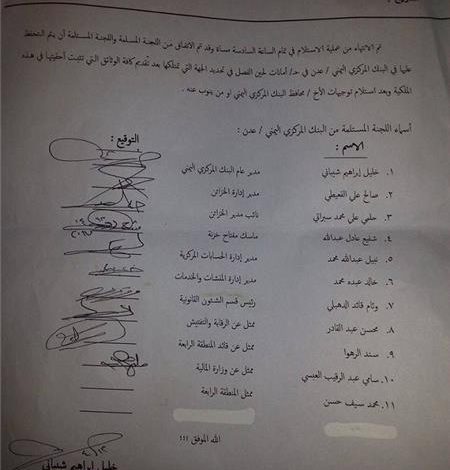 تم الانتهاء من عملية الاستلام في تمام الساعة السادسة مساءً وقد تم الاتفاق من اللجنة المسلمة واللجنة المستلمة أن يتم التحفظ
عليها في البنك المركزي اليمني / عدن في حـ/ أمانات لحين الفصل في تحديد الجهة التي تمتلكها بعد تقديم كافة الوثائق التي تثبت أحقيتها في هذه
الملكية وبعد استلام توجيهات الأخ / محافظ البنك المركزي اليمني أو من ينوب عنه .
أسماء اللجنة المستلمة من البنك المركزي اليمني / عدن :
الاسم : التوقيع :
١. خليل إبراهيم شيباني مدير عام البنك المركزي اليمني
٢. صالح علي القعيطي مدير إدارة الخزائن
٣. حلمي علي محمد سبراتي نائب مدير الخزائن
٤. شفيع عادل عبدالله ماسك مفتاح خزنة
٥. نبيل عبدالله محمد مدير إدارة الحسابات المركزية
٦. خالد عبده محمد مدير إدارة المنشآت والخدمات
٧. وئام قائد الدهبلي رئيس قسم الشئون القانونية
٨. محسن عبد القادر ممثل عن الرقابة والتفتيش
٩. سند الرهوا ممثل عن قائد المنطقة الرابعة
١٠. سامي عبد الرقيب العنسي ممثل عن وزارة المالية
١١. محمد سيف حسن ممثل المنطقة الرابعة
الله الموفق !!!
خليل إبراهيم شيباني